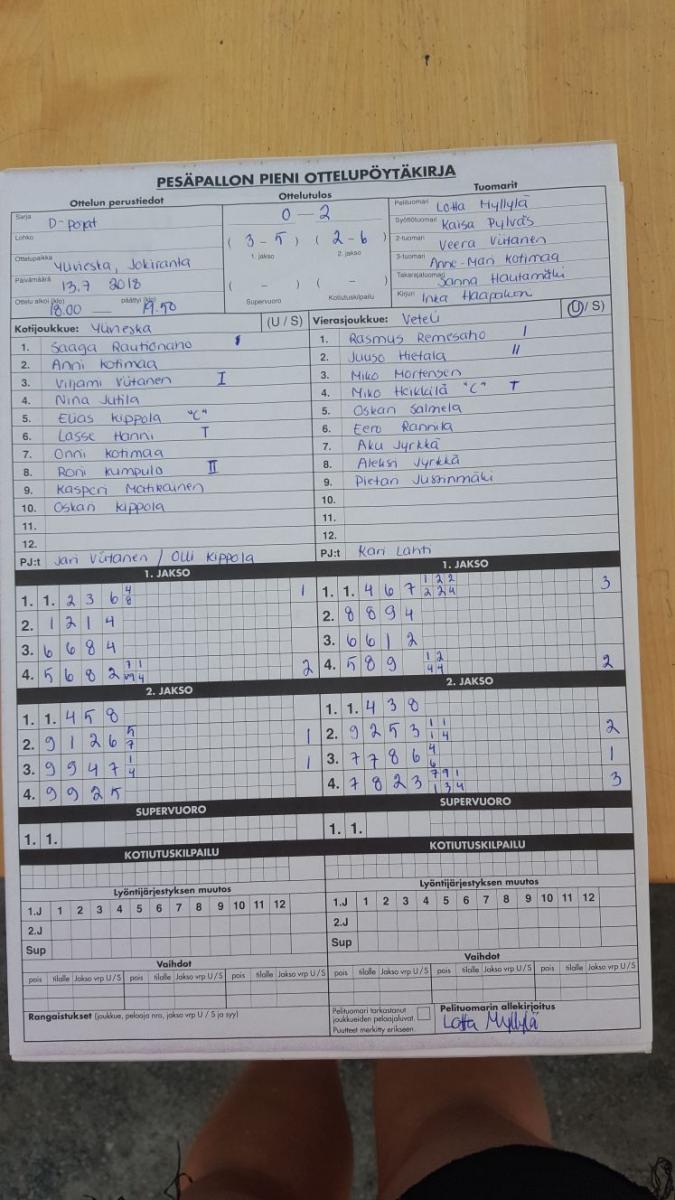 PESÄPALLON PIENI OTTELUPÖYTÄKIRJA
Ottelun perustiedot
Sarja D-pojat
Lohko
Ottelupaikka Ylivieska, Jokiranta
Päivämäärä 13.7 2018
Ottelu alkoi (klo) 18.00 päättyi (klo) 19.50
Ottelutulos
0 - 2
( 3 - 5 ) ( 2 - 6 )
1. jakso 2. jakso
( - ) ( - )
Supervuoro Kotiutuskilpailu
Tuomarit
Pelituomari Lotta Myllylä
Syöttötuomari Kaisa Pylväs
2-tuomari Veera Viitanen
3-tuomari Anne-Mari Kotimaa
Takarajatuomari Sanna Hautamäki
Kirjuri Inka Haapakon
Kotijoukkue: Ylivieska (U / S)
1. Saaga Rautionaho I
2. Anni Kotimaa
3. Viljami Viitanen I
4. Nina Jutila
5. Elias Kippola "C"
6. Lasse Hanni T
7. Onni Kotimaa
8. Roni Kumpula II
9. Kasperi Matikainen
10. Oskari Kippola
11.
12.
PJ:t Jari Viitanen / Olli Kippola
Vierasjoukkue: Veteli (U / S)
1. Rasmus Remesaho I
2. Juuso Hietala II
3. Miko Mortensen
4. Miko Heikkilä "C" T
5. Oskari Salmela
6. Eero Rannila
7. Aku Jyrkkä
8. Aleksi Jyrkkä
9. Pietari Jussinmäki
10.
11.
12.
PJ:t Kari Lahti
1. JAKSO
1. 1. 2 3 6 4 8 1
2. 1 2 1 4
3. 6 6 8 4
4. 5 6 8 2 2
2. JAKSO
1. 1. 4 5 8
2. 9 1 2 6 5 7 1
3. 9 9 4 7 1 4 1
4. 9 9 2 5
SUPERVUORO
1. 1.
KOTIUTUSKILPAILU
1. JAKSO
1. 1. 4 6 7 1 2 2 2 2 4 3
2. 8 8 9 4
3. 6 6 1 2
4. 5 8 9 1 2 4 4 2
2. JAKSO
1. 1. 4 3 8
2. 9 2 5 3 1 1 1 4 2
3. 7 7 8 6 4 6 1
4. 7 8 2 3 7 9 1 1 3 4 3
SUPERVUORO
1. 1.
KOTIUTUSKILPAILU
Lyöntijärjestyksen muutos
1.J 1 2 3 4 5 6 7 8 9 10 11 12
2.J
Sup
Vaihdot
pois tilalle Jakso vrp U / S pois tilalle Jakso vrp U / S pois tilalle Jakso vrp U / S
Lyöntijärjestyksen muutos
1.J 1 2 3 4 5 6 7 8 9 10 11 12
2.J
Sup
Vaihdot
pois tilalle Jakso vrp U / S pois tilalle Jakso vrp U / S pois tilalle Jakso vrp U / S
Rangaistukset (joukkue, pelaaja nro, jakso vrp U / S ja syy)
Pelituomari tarkastanut
joukkueiden pelaajaluvat.
Puutteet merkitty erikseen.
Pelituomarin allekirjoitus
Lotta Myllylä